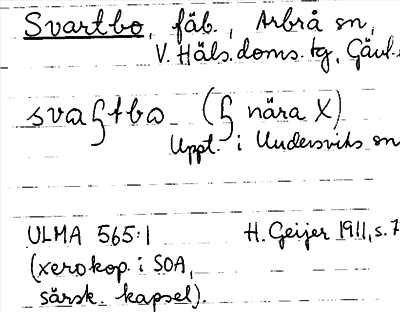 Svartbo, fäb., Arbrå sn,
V. Häls. doms. tg, Gävl.
sva§tbo (§ nära X)
Uppt. i Undersviks sn
ULMA 565:1 H. Geijer 1911, s. 7
(xerokop. i SOA,
särsk. kapsel).